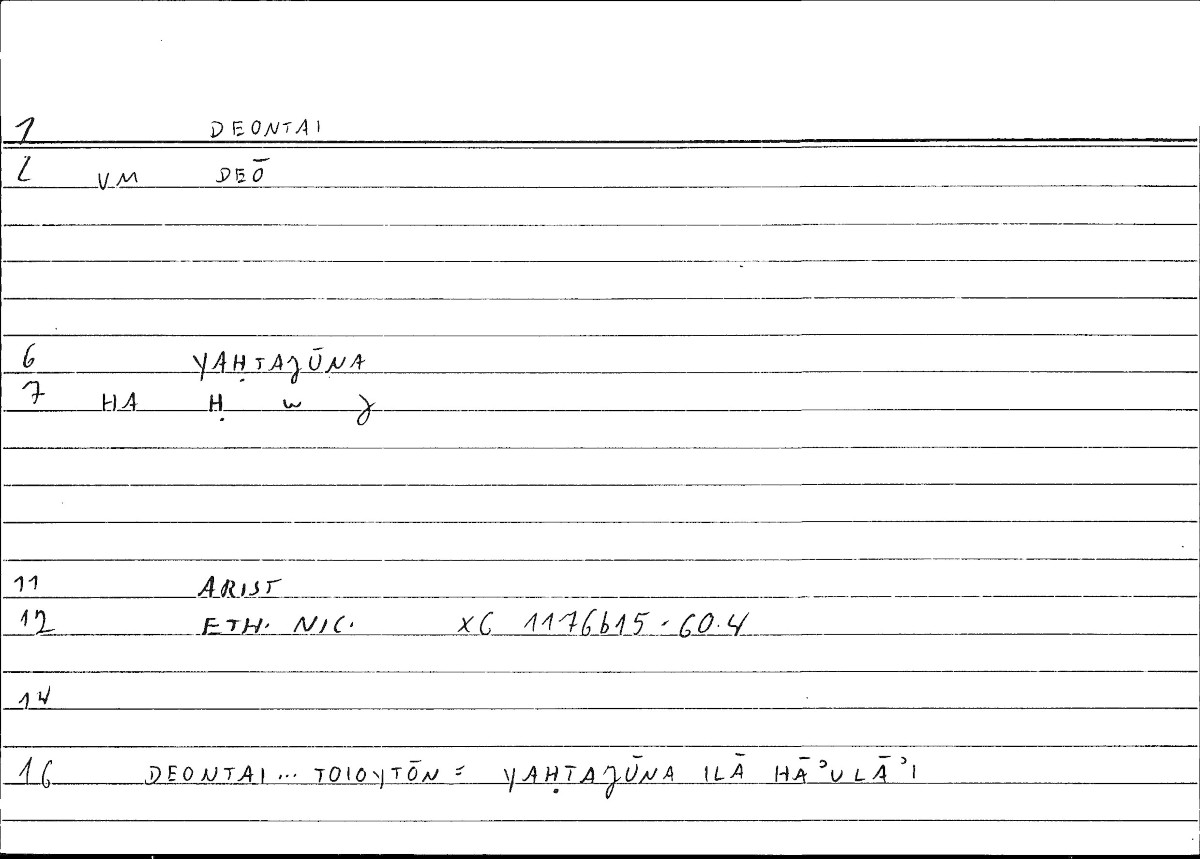 1 DEONTAI
2 VM DEŌ
6 YAḤTAJŪNA
7 HA Ḥ w J
11 ARIST
12 ETH. NIC. X6 1176b15 · 60.4
14
16 DEONTAI... TOIOYTŌN = YAḤTAJŪNA ILĀ HĀʾULĀʾI